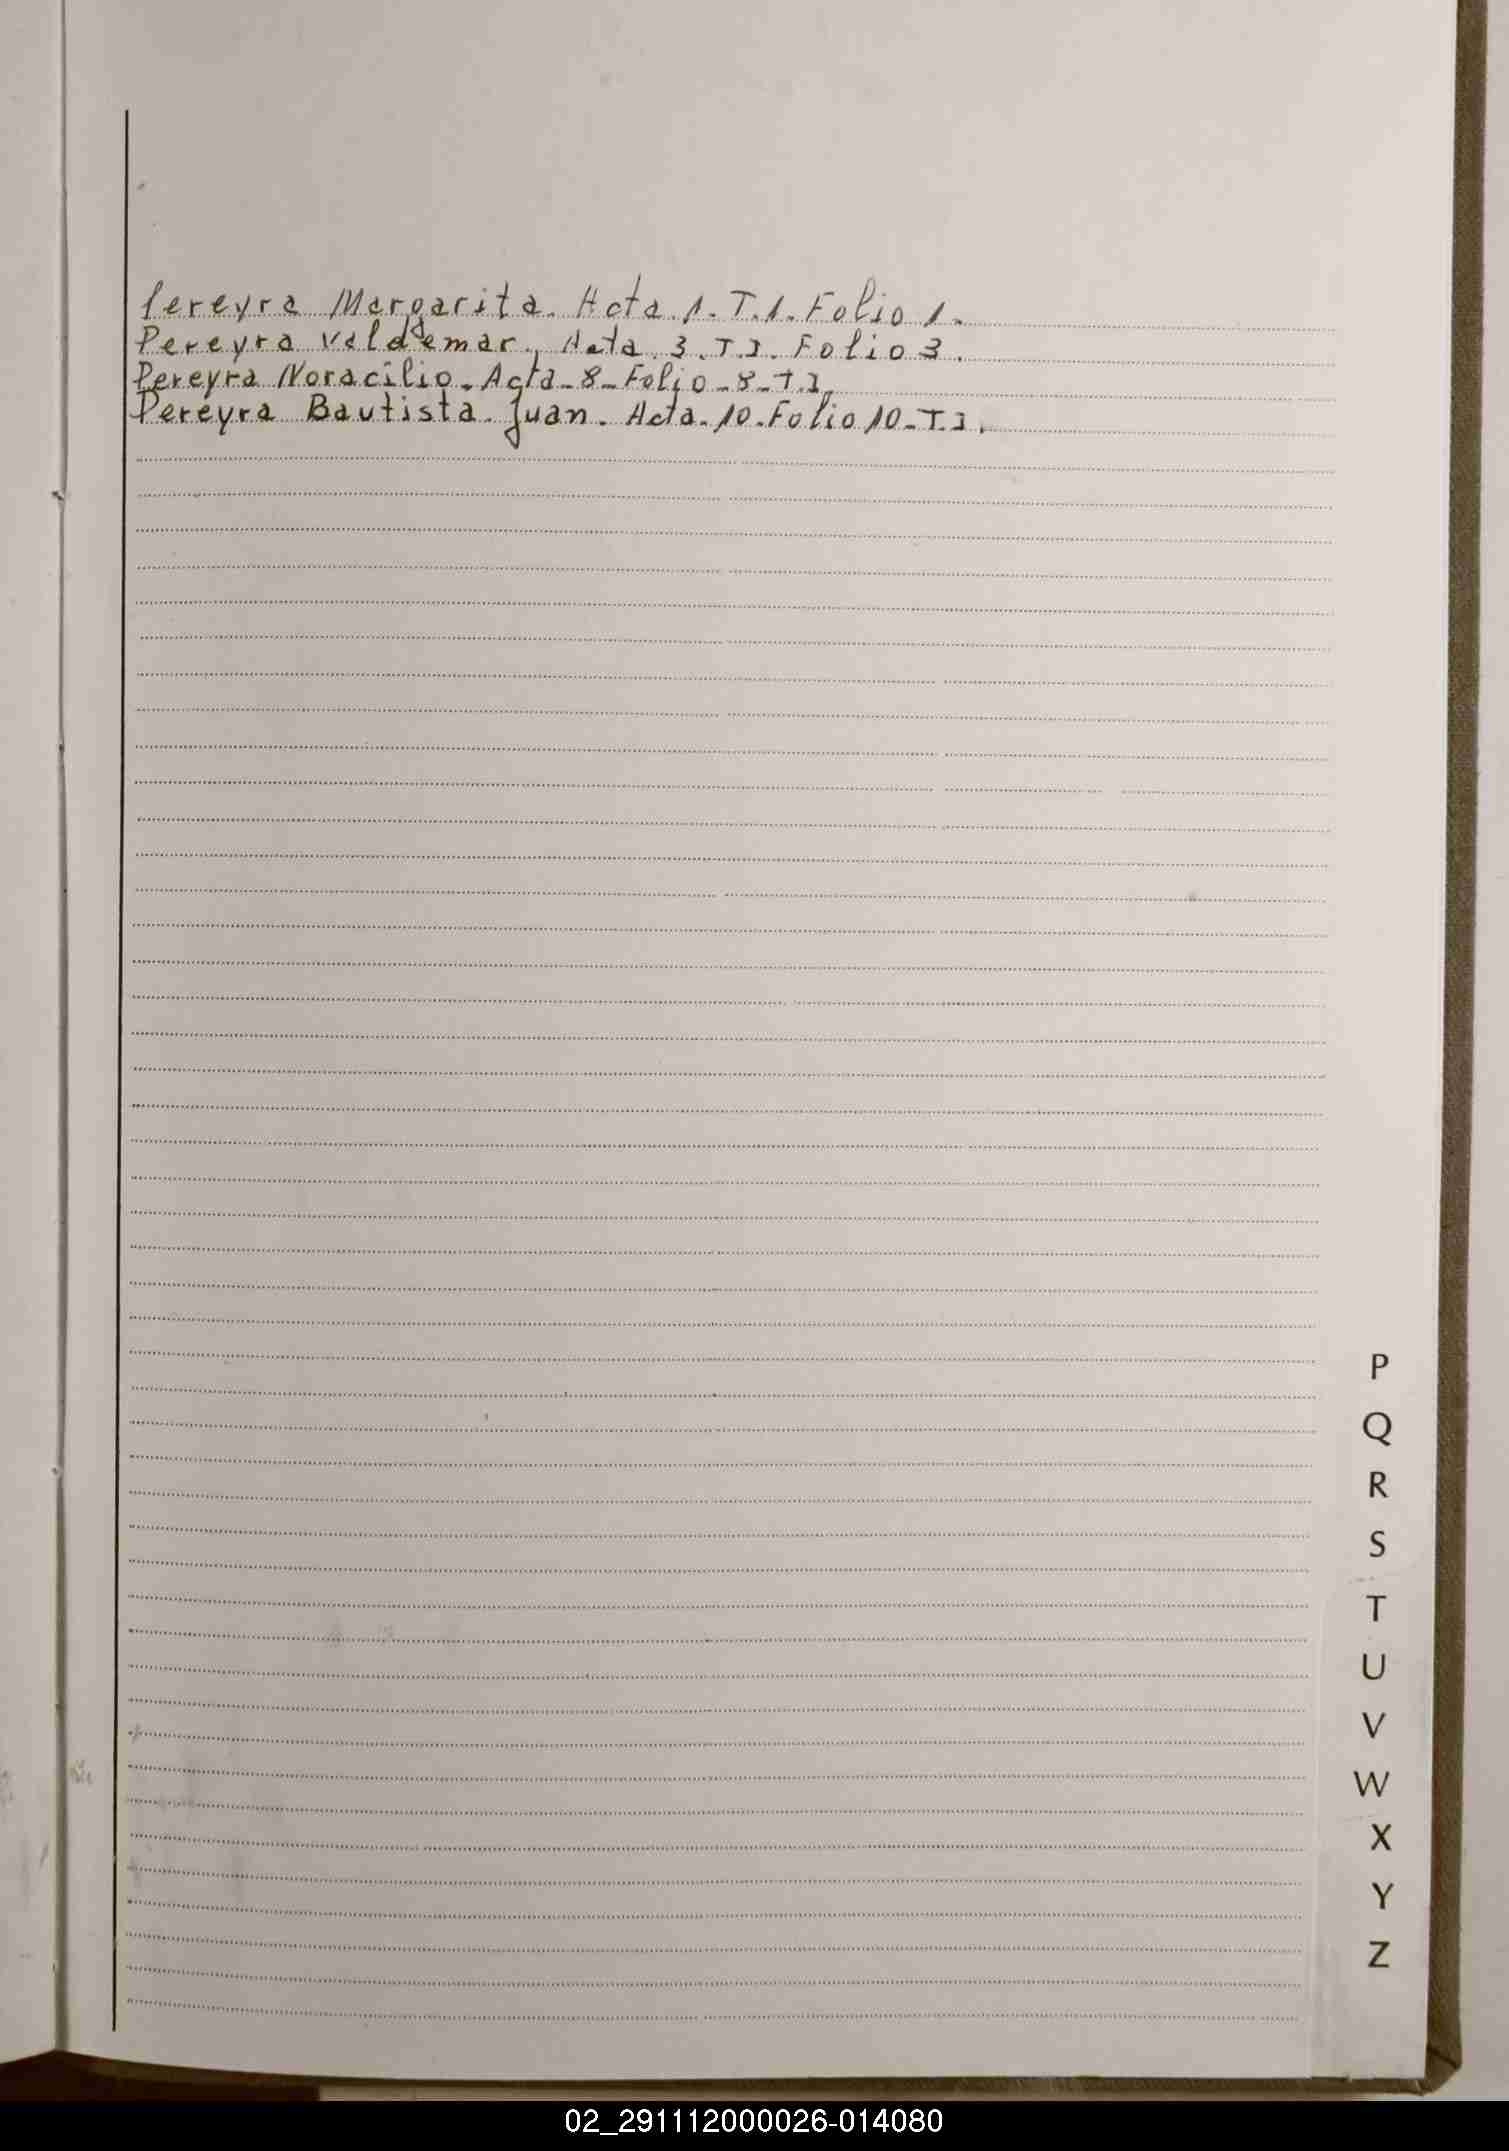 Pereyra Margarita. Acta. 1. T.1. Folio 1.
Pereyra Valdemar. Acta. 3. T.1. Folio 3.
Pereyra Noracilio. Acta-8-Folio-8-T.1.
Pereyra Bautista. Juan. Acta-10. Folio 10-T.1.
P
Q
R
S
T
U
V
W
X
Y
Z
02_291112000026-014080